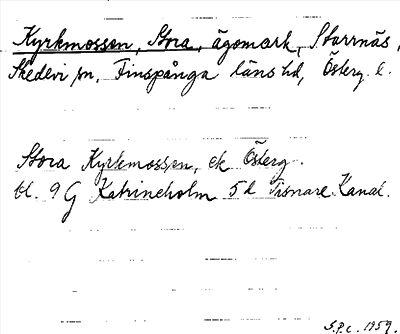 Kyrkmossen, Stora, ägomark, Starrnäs,
Skedevi sn, Finspånga läns hd, Österg. l.
Stora Kyrkmossen, ek Österg.
bl. 9 G Katrineholm 5 d Tisnare Kanal.
S.P.c. 1959.